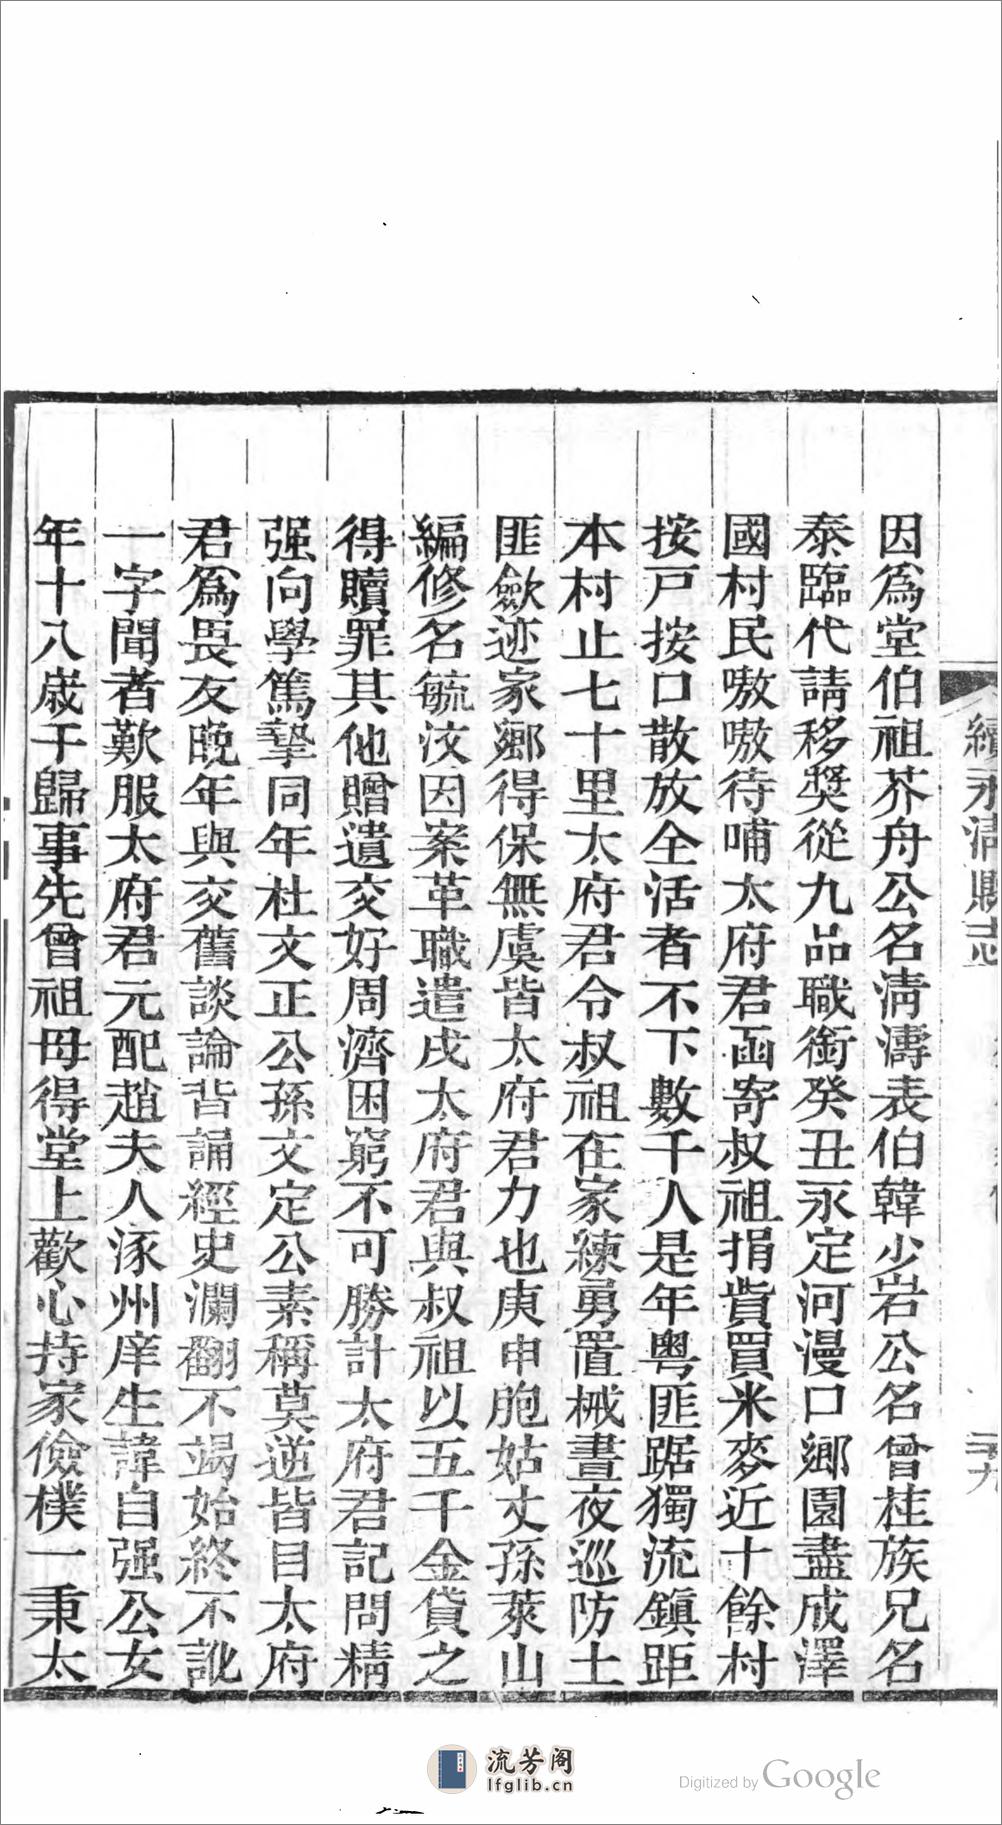 因爲堂伯祖芥舟公名淸濤表伯韓少岩公名曾桂族兄名
泰臨代請移奬從九品職銜癸丑永定河漫口鄉園盡成澤
國村民嗷嗷待哺太府君函寄叔祖捐貲買米麥近十餘村
按戸按口散放全活者不下數千人是年粵匪踞獨流鎮距
本村止七十里太府君令叔祖在家練勇置械晝夜巡防土
匪歛迹家鄉得保無虞皆太府君力也庚申胞姑丈孫萊山
編修名毓汶因案革職遣戍太府君與叔祖以五千金貸之
得贖罪其他贈遺交好周濟困窮不可勝計太府君記問精
强向學篤摯同年杜文正公孫文定公素稱莫逆皆目太府
君爲畏友晚年與交舊談論背誦經史瀾翻不竭始終不訛
一字聞者歎服太府君元配趙夫人涿州庠生諱自强公女
年十八歲于歸事先曾祖母得堂上歡心持家儉樸一秉太
續永淸縣志
二十九
流芳阁
lfglib.cn
Digitized by Google